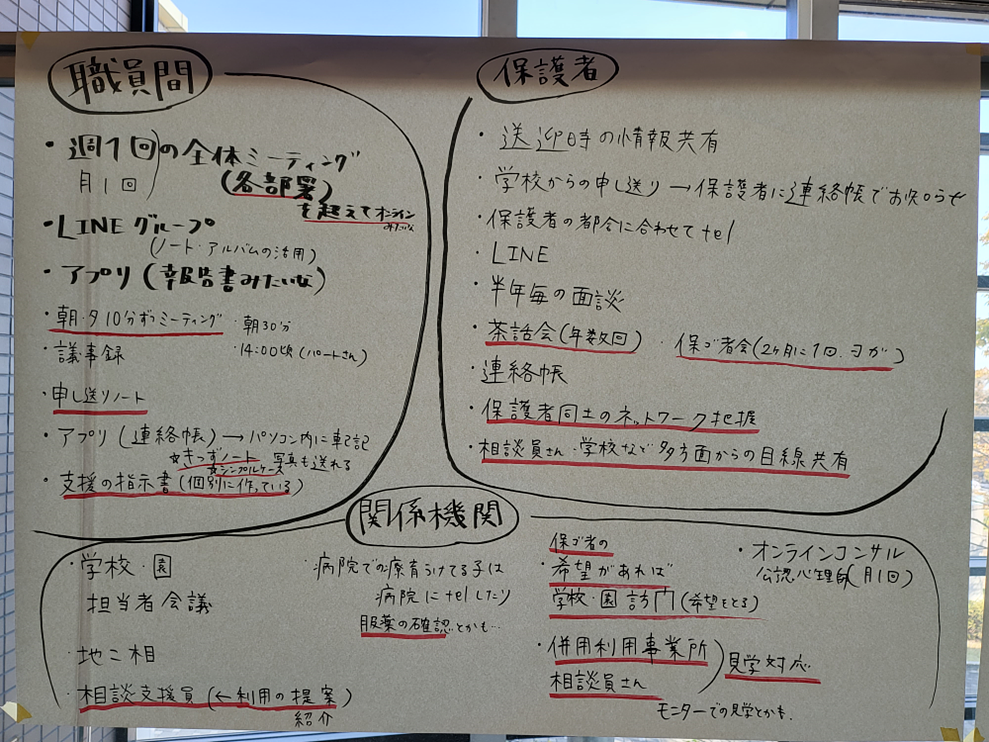 職員間
・週1回の全体ミーティング
月1回
(各部署)
を超えてオンライン
みたいな
・LINEグループ
(ノート・アルバムの活用)
・アプリ(報告書みたいな)
・朝・夕10分ずつミーティング
・朝30分
・議事録
・14:00頃(パートさん)
・申し送りノート
・アプリ(連絡帳)→パソコン内に転記
☆きっずノート 写真も送れる
☆シンプルケース
・支援の指示書(個別に作っている)
保護者
・送迎時の情報共有
・学校からの申し送り→保護者に連絡帳でお知らせ
・保護者の都合に合わせてtel
・LINE
・半年毎の面談
・茶話会(年数回)
・保ゴ者会(2ヶ月に1回.ヨガ)
・連絡帳
・保護者同士のネットワーク把握
・相談員さん・学校など多方面からの目線共有
関係機関
・学校・園
担当者会議
・地二相
・相談支援員(←利用の提案)
紹介
病院での療育うけてる子は
病院にtelしたり
服薬の確認とかも…
保ゴ者の
・希望があれば
学校・園訪問(希望をとる)
・併用利用事業所
相談員さん
見学対応
モニターでの見学とかも.
・オンラインコンサル
公認心理師(月1回)